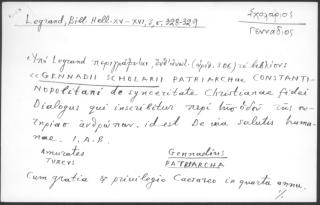 Legrand, Bibl. Hell. XV-XVI, 3, σ. 328-329
Σχολάριος
Γεννάδιος
Ὑπὸ Legrand περιγράφεται, τὸ βιβλίον
«GENNADII SCHOLARII PATRIARCHAE CONSTANTI-
NOPOLITANI de synceritate Christianae fidei
Dialogus qui inscribitur περὶ τῆς ὁδοῦ τῆς σω-
τηρίας ἀνθρώπων. id est De via salutis huma-
nae. I.A.B.
Amurates Gennadius
TURCVS PATRIARCHA
Cum gratia & privilegio Caesareo in quarta annu.